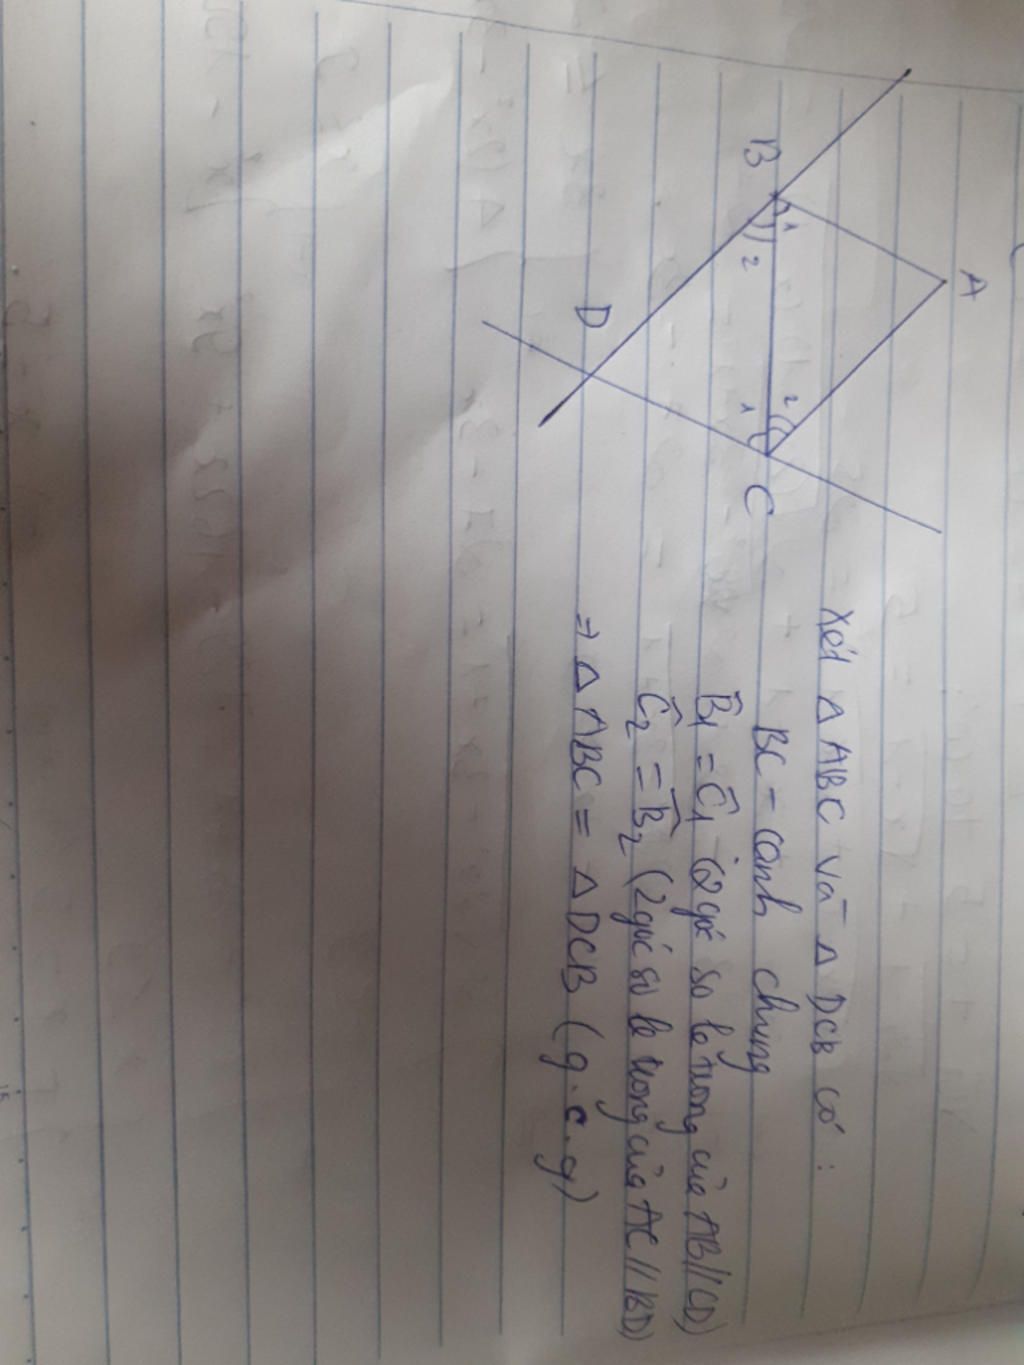 A
B
1
2
2
1
C
D
Xét △ ABC và △ DCB có :
BC - cạnh chung
B̂1 = Ĉ1 (2 góc so le trong của AB // CD)
Ĉ2 = B̂2 (2 góc so le trong của AC // BD)
⇒ △ ABC = △ DCB (g.c.g)